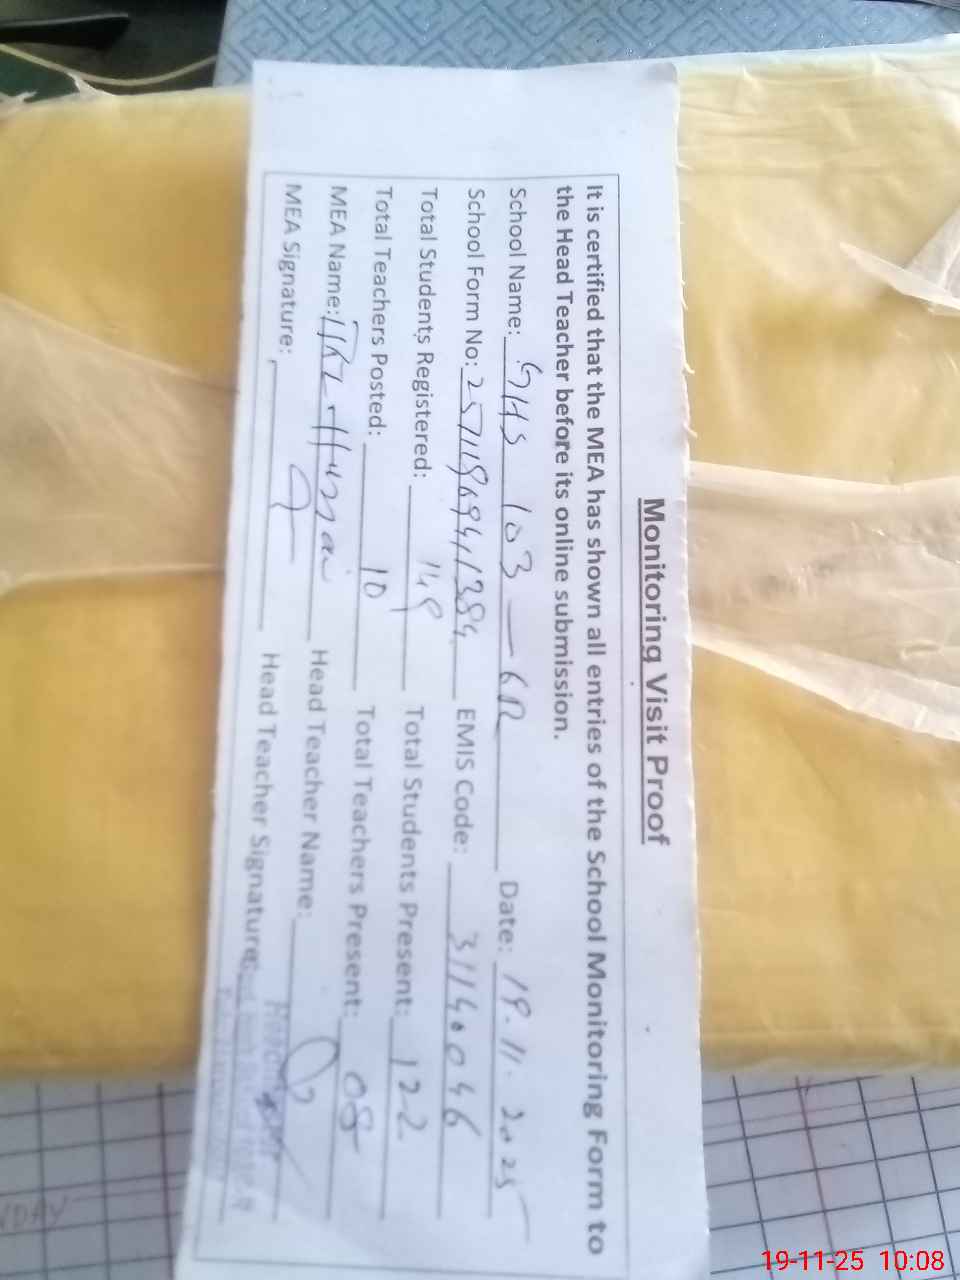 Monitoring Visit Proof
It is certified that the MEA has shown all entries of the School Monitoring Form to
the Head Teacher before its online submission.
School Name: GHS 103-6R Date: 19.11.2025
School Form No: EMIS Code: 31140046
Total Students Registered: 149 Total Students Present: 122
Total Teachers Posted: 10 Total Teachers Present: 08
MEA Name: Head Teacher Name:
MEA Signature: Head Teacher Signature:
19-11-25 10:08